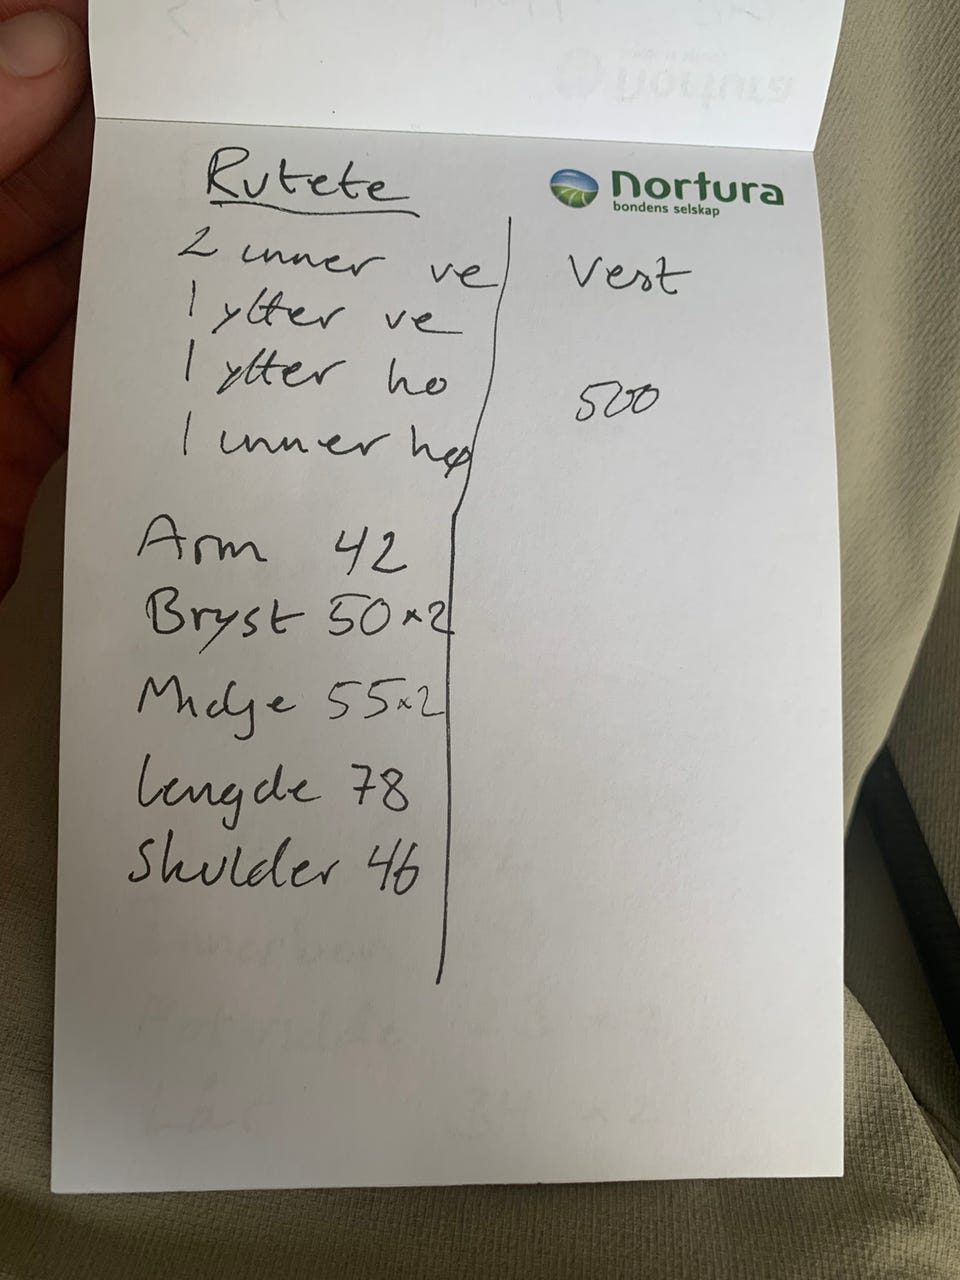 Rutete
nortura
bondens selskap
2 inner ve
1 ytter ve
1 ytter hø
1 inner hø
Arm 42
Bryst 50×2
Midje 55×2
Lengde 78
Skulder 46
Vest
500